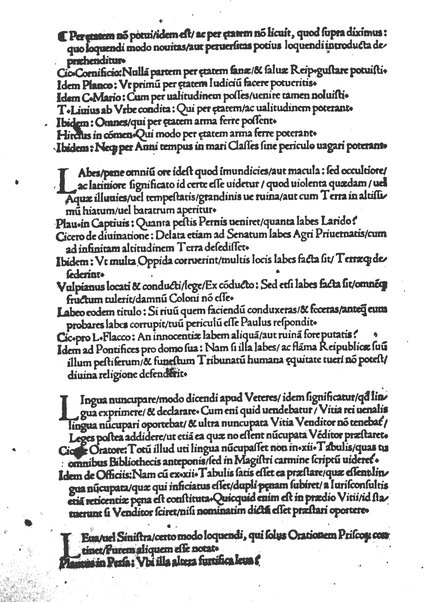 ¶ Per ętatem nō potui/idem est/ac per ętatem nō licuit, quod supra diximus:
quo loquendi modo nouitas/aut peruersitas potius loquendi introducta de⸗
præhenditur.
Cic. Cornificio: Nullā partem per ętatem sanæ/& saluæ Reip. gustare potuisti.
Idem Planco: Vt primū per ętatem Iudiciū facere potueritis.
Idem C. Mario: Cum per ualitudinem posses/uenire tamen noluisti.
T. Liuius ab Vrbe condita: Qui per ętatem/ac ualitudinem poterant.
Ibidem: Omnes/qui per ętatem arma ferre possent.
Hircius in cōmen. Qui modo per ętatem arma ferre poterant.
Ibidem: Neq; per Anni tempus in mari Classes sine periculo uagari poterant.
LAbes/pene omniū ore idest quod ímundicies/aut macula: sed occultiore/
ac latiniore significato id certe esse uidetur/ quod uiolenta quædam/uel
Aquæ illuuies/uel tempestatis/grandinis ue ruina/aut cum Terra in altissi⸗
mū hiatum/uel baratrum aperitur.
Plau. in Captiuis: Quanta pestis Pernis ueniret/quanta labes Larido?
Cicero de diuinatione: Delata etiam ad Senatum labes Agri Priuernatis/cum
ad infinitam altitudinem Terra desedisset.
Ibidem: Vt multa Oppida corruerint/multis locis labes facta sit/Terræq; de⸗
sederint.
Vulpianus locati & conducti/lege/Ex cōducto: Sed etsi labes facta sit/omnēq;
fructum tulerit/damnū Coloni nō esse.
Labeo eodem titulo: Si riuū quem faciendū conduxeras/& feceras/anteq; eum
probares labes corrupit/tuū periculū esse Paulus respondit.
Cic. pro L. Flacco: An innocentiæ labem aliquā/aut ruinā fore putatis?
Idem ad Pontifices pro domo sua: Nam si illa labes/ac flāma Reipublicæ suū
illum pestiferum/& funestum Tribunatū humana equitate tueri nō potest/
diuina religione defenderit.
LIngua nuncupare/modo dicendi apud Veteres/idem significatur/qđ lin⸗
gua exprimere/& declarare. Cum eni quid uendebatur/Vitia rei uenalis
lingua nūcupari oportebat/& ultra nuncupata Vitia Venditor nō tenebat̄/
Leges postea addidere/ut etiā ea quæ no essent nūcupata Vēditor præstaret.
Cic. de Oratore: Totū illud uti lingua nūcupasset non in. xii. Tabulis/quas tu
omnibus Bibliothecis anteponis/sed in Magistri carmine scriptū uideres?
Idem de Officiis: Nam cū ex. xii. Tabulis satis esset ea præstare/quæ essent lin⸗
gua nūcupata/quæ qui inficiatus esset/dupli pęnam subiret/a Iurisconsultis
etiā reticentiæ pęna est constituta. Quicquid enim est in prædio Vitii/id sta⸗
tuerunt si Venditor sciret/nisi nominatim dictū esset præstari oportere.
LEua/uel Sinistra/certo modo loquendi, qui solus Orationem Priscoq; con
tinet/Furem aliquem esse notat.
Plautus in Persa: Vbi illa altera furtifica leua?